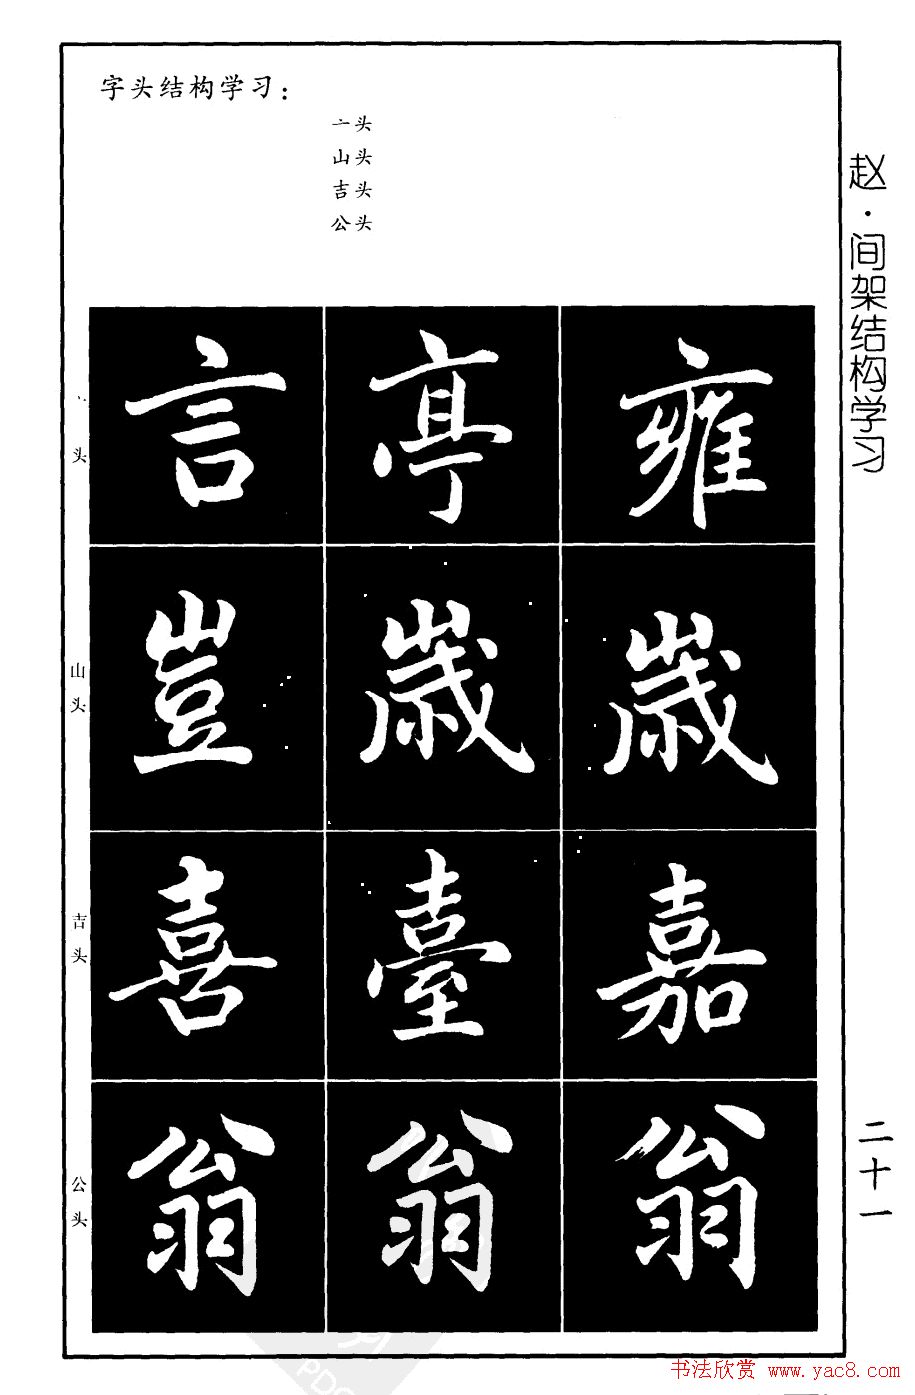 字头结构学习：
亠头
山头
吉头
公头
赵·间架结构学习
头
言亭雍
山头
豈歲歲
吉头
喜臺嘉
公头
翁翁翁
二十一
书法欣赏 www.yac8.com